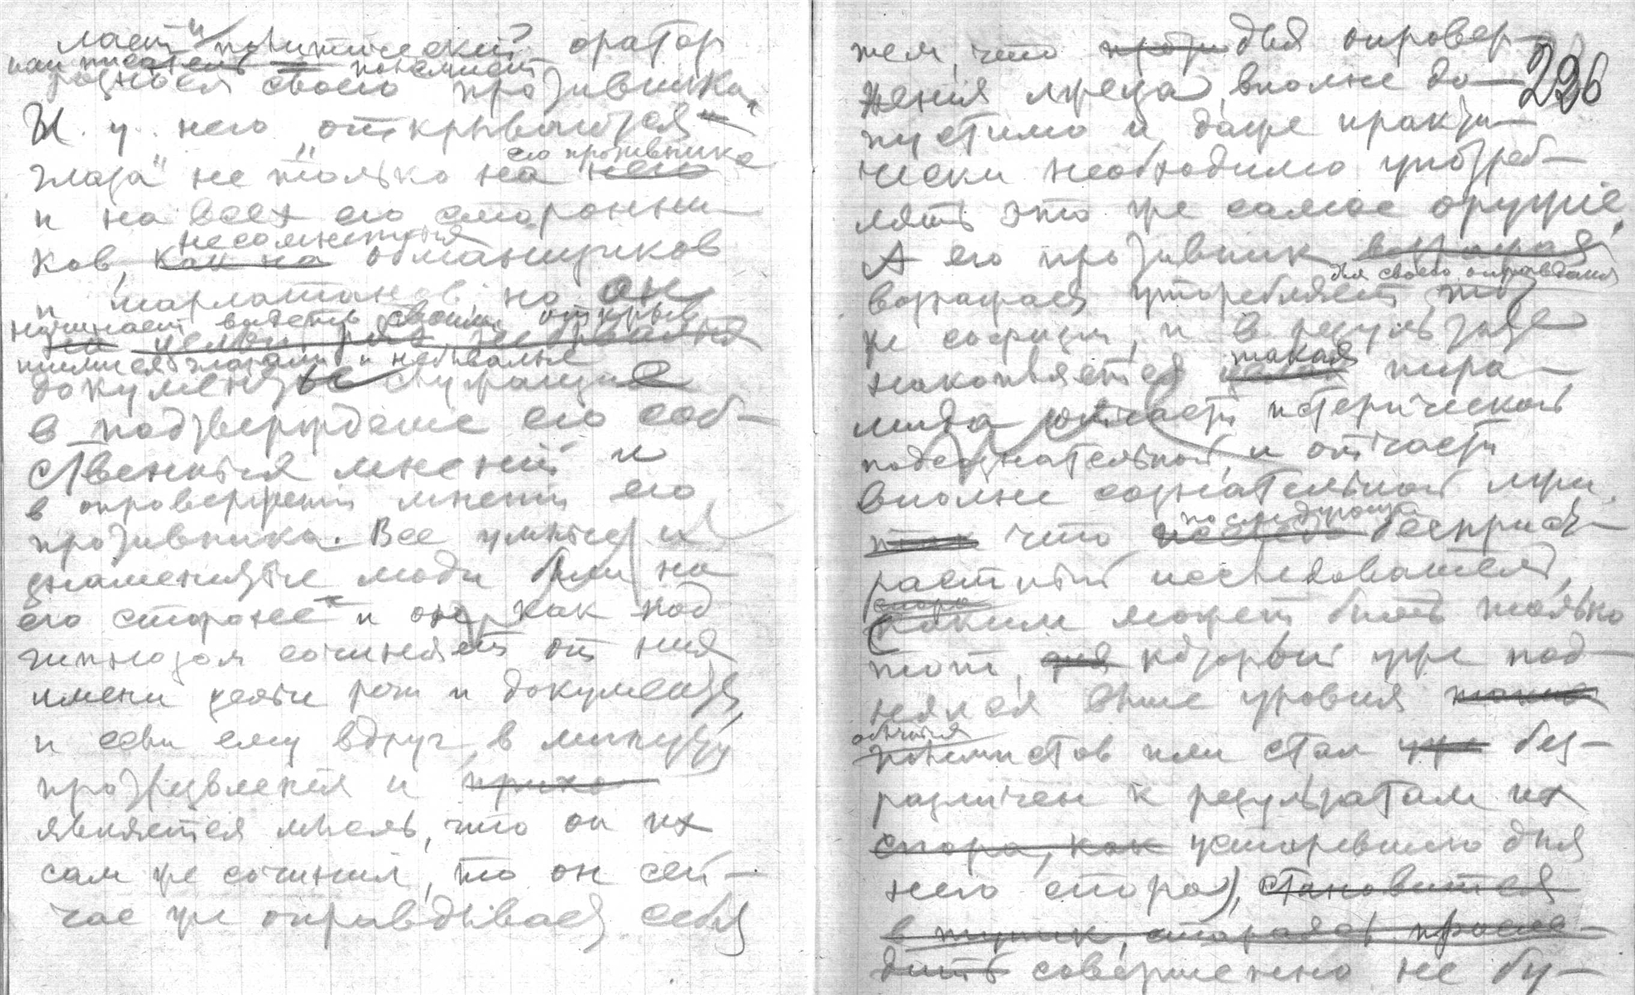 лает политический оратор
или писатель полемист
своего противника.
И у него „открываются
глаза" не только на его противника
и на всех его сторонни-
ков, несомненных обманщиков
и шарлатанов, но он
начинает видеть своими открыв-
шимися глазами и небывалые
документы служащие
в подтверждение его соб-
ственных мнений и
в опровержение мнений его
противника. Все умные и
знаменитые люди были на
его стороне и он, как под
гипнозом сочиняет от них
имени целые речи и документы,
и если ему вдруг, в минуту
протрезвления и прихо
является мысль, что он их
сам же сочинил, то он сей-
час же оправдывает себя
тем, что для опровер-
226
жения лжеца, вполне до-
пустимо и даже практи-
чески необходимо употреб-
лять это же самое оружие.
А его противник
для своего оправдания
возражая употребляет тот
же софизм, и в результате
накопляется такая пира-
мида отчасти истерической
подсознательной, и отчасти
вполне сознательной лжи,
что последующий беспристр-
растный исследователь,
(каким может быть только
тот, который уже под-
нялся выше уровня
обычных
полемистов или стал без-
различен к результатам их
спора, как устаревшего для
него спора), становится
в тупик, стараясь просле-
дить совершенно не бу-